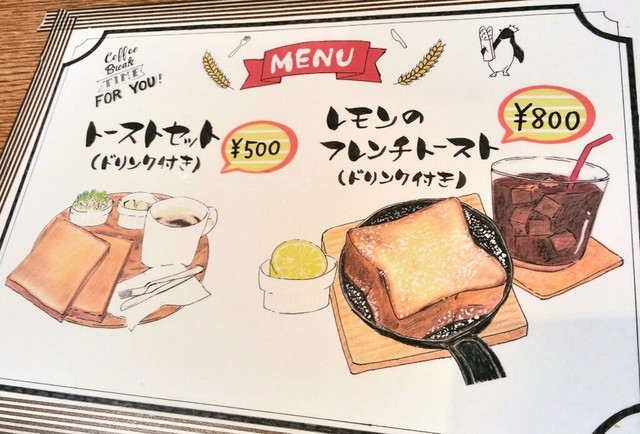 Coffee
Break
TIME
FOR YOU!
MENU
トーストセット
(ドリンク付き)
¥500
レモンの
フレンチトースト
(ドリンク付き)
¥800